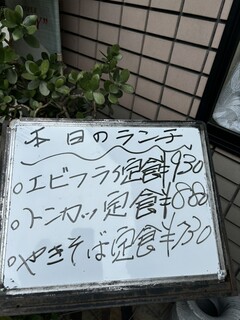 本日のランチ
○エビフライ定食¥930
○トンカツ定食¥880
○やきそば定食¥730